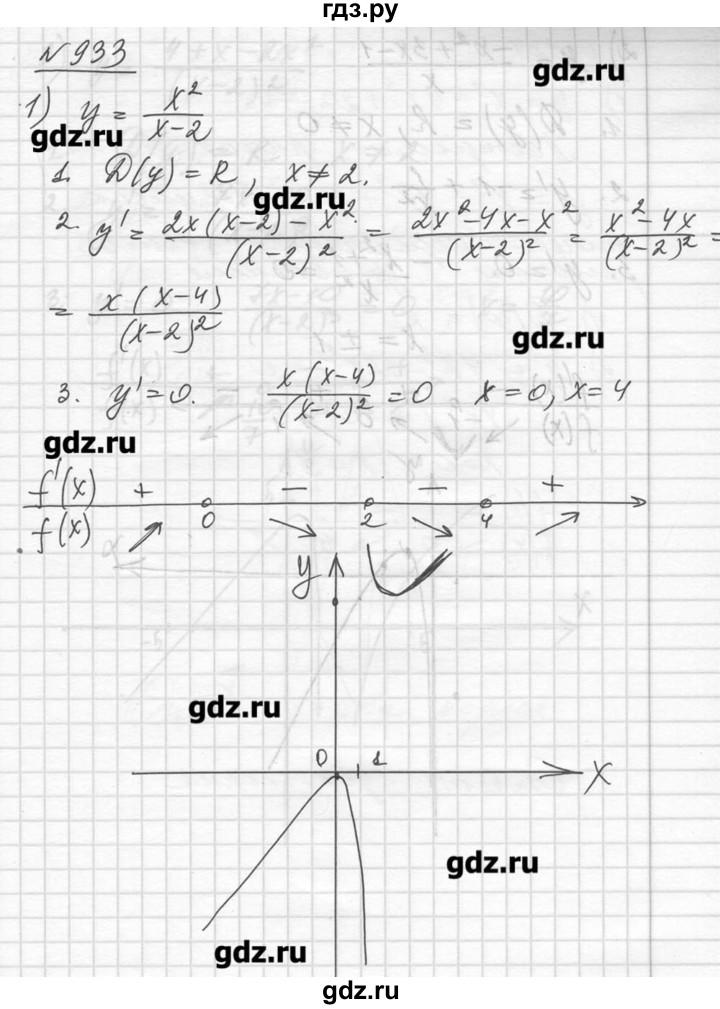 гдз.ру
№ 933
gdz.ru
1) y = x²/(x-2)
gdz.ru
1. D(y) = R, x ≠ 2.
gdz.ru
2. y' = (2x(x-2) - x²)/(x-2)² = (2x²-4x-x²)/(x-2)² = (x²-4x)/(x-2)² =
= x(x-4)/(x-2)²
gdz.ru
3. y' = 0. x(x-4)/(x-2)² = 0 x = 0, x = 4
gdz.ru
f'(x) + − − +
0 2 4
f(x)
y
gdz.ru
0 1
x
gdz.ru
gdz.ru
gdz.ru